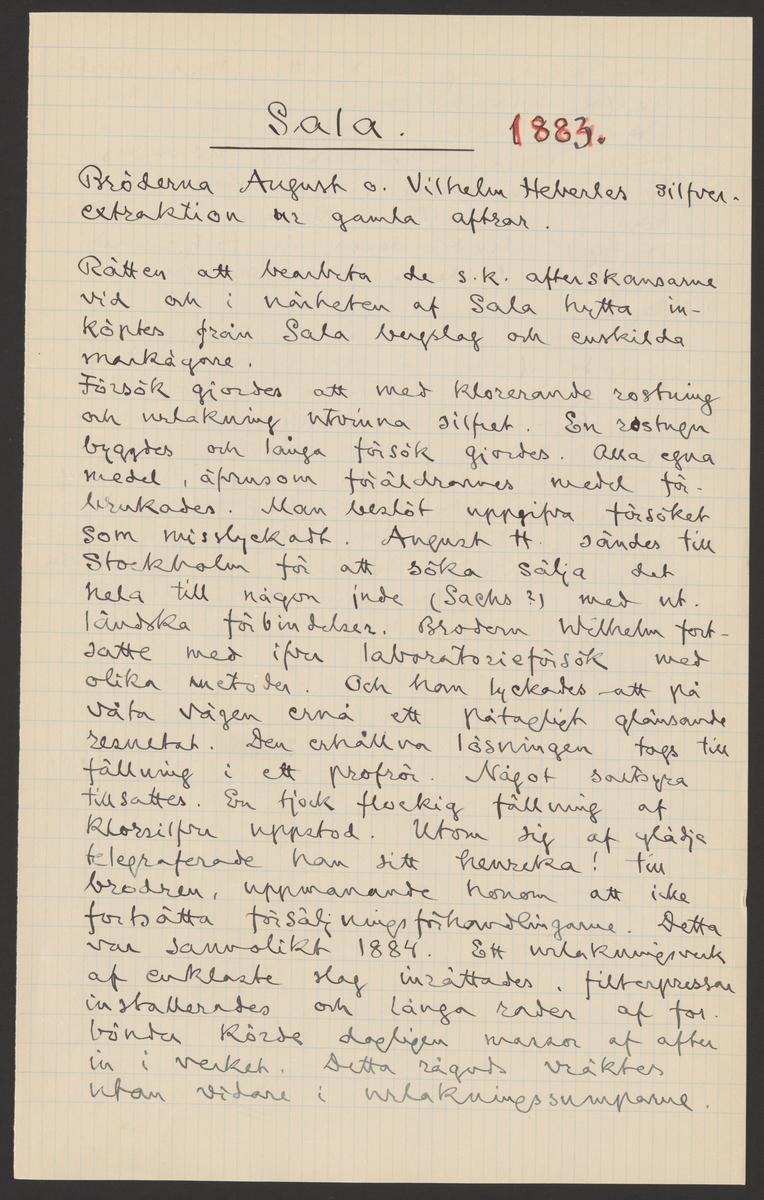 Sala. 1883.
Bröderna August o. Vilhelm Heberles silfver-
extraktion ur gamla aftrar.
Rätten att bearbeta de s.k. afterskansarne
vid och i närheten af Sala hytta in-
köptes från Sala bergslag och enskilda
markägare.
Försök gjordes att med klorerande rostning
och urlakning utvinna silfret. En rostugn
byggdes och långa försök gjordes. Alla egna
medel, äfvensom föräldrarnes medel för-
brukades. Man beslöt uppgifva försöket
som misslyckadt. August H. sändes till
Stockholm för att söka sälja det
hela till någon jude (Sachs?) med ut-
ländska förbindelser. Brodern Wilhelm fort-
satte med ifver laboratorieförsök med
olika metoder. Och han lyckades att på
våta vägen ernå ett påtagligt glänsande
resultat. Den erhållna lösningen togs till
fällning i ett profrör. Något saltsyra
tillsattes. En tjock flockig fällning af
klorsilfver uppstod. Utom sig af glädje
telegraferade han sitt heureka! till
brodren, uppmanande honom att icke
fortsätta försäljningsförhandlingarne. Detta
var sannolikt 1884. Ett urlakningsverk
af enklaste slag inrättades, filterpressar
installerades och långa rader af for-
bönder körde dagligen massor af after
in i verket. Detta rågods vräktes
utan vidare i urlakningssumparne.